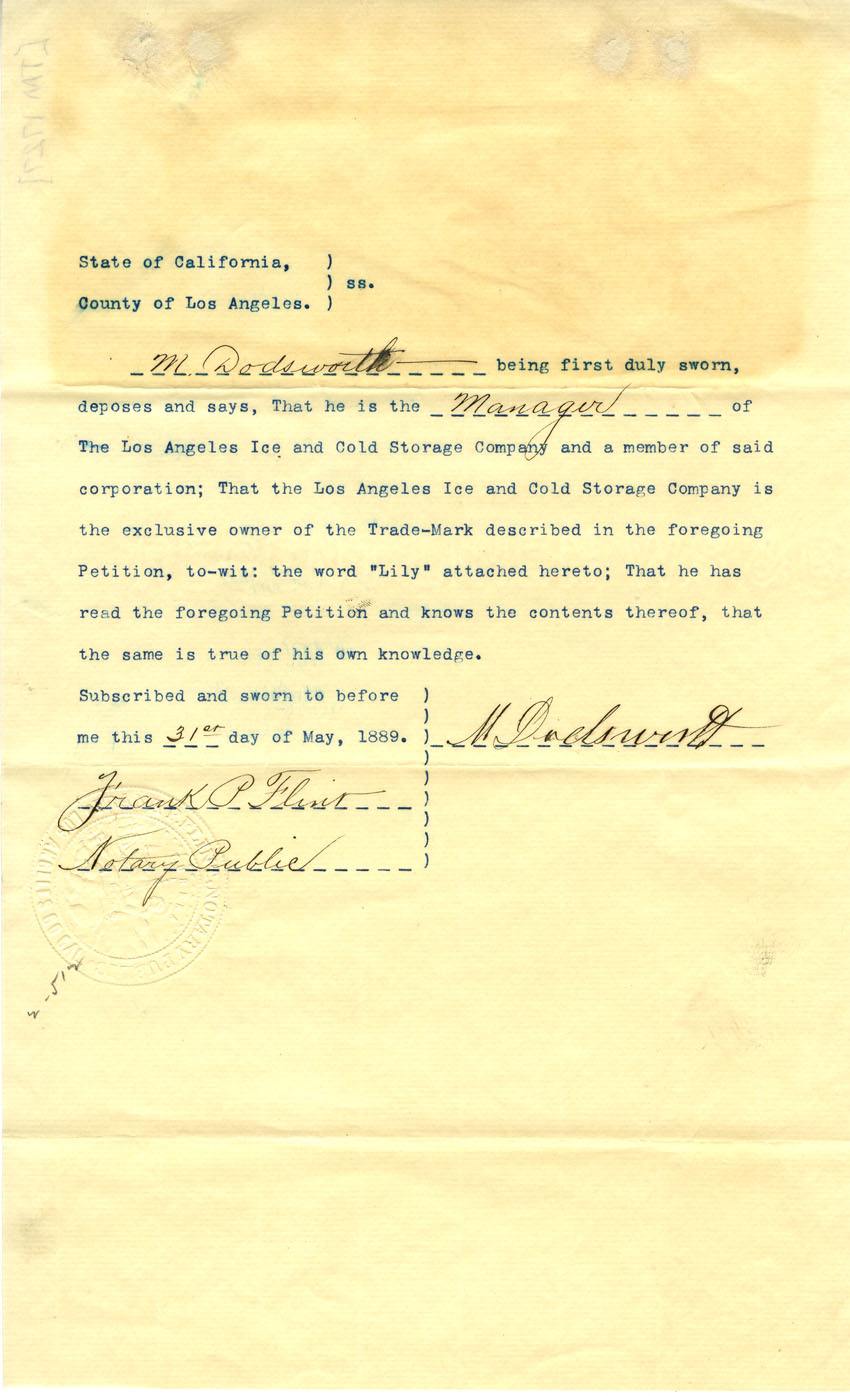 State of California, )
) ss.
County of Los Angeles. )
M. Dodsworth being first duly sworn,
deposes and says, That he is the Manager of
The Los Angeles Ice and Cold Storage Company and a member of said
corporation; That the Los Angeles Ice and Cold Storage Company is
the exclusive owner of the Trade-Mark described in the foregoing
Petition, to-wit: the word "Lily" attached hereto; That he has
read the foregoing Petition and knows the contents thereof, that
the same is true of his own knowledge.
Subscribed and sworn to before )
)
me this 31st day of May, 1889. ) M Dodsworth
)
)
Frank P Flint )
)
)
Notary Public )
NOTARY PUBLIC